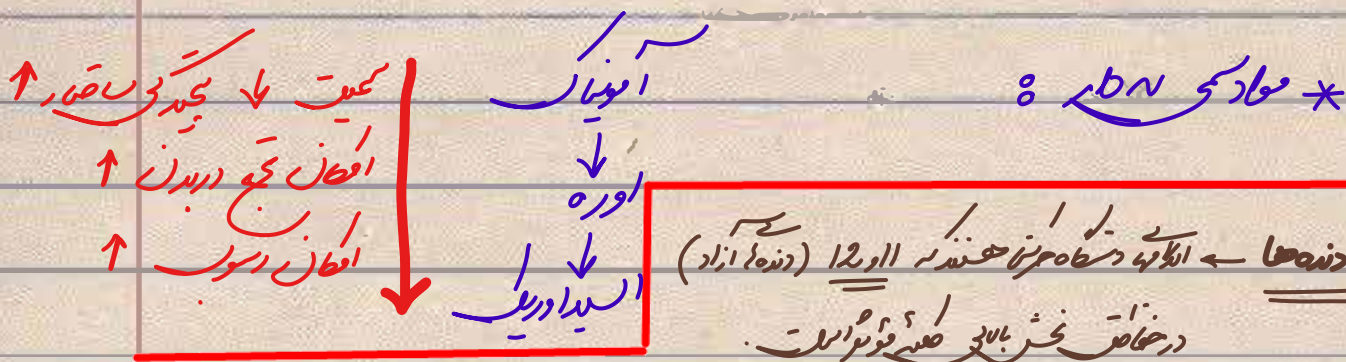 * مواد دفعی N دار :
آمونیاک
↓
اوره
↓
اسیداوریک
سمیت ↓ پیچیدگی ساختار ↑
امکان تجمع در بدن ↑
امکان رسوب ↑
دنده‌ها ← دستگاه حرکتی هستند که 11 و 12 (دنده‌های آزاد)
در حفاظت بخش بالایی کلیه مؤثر است.